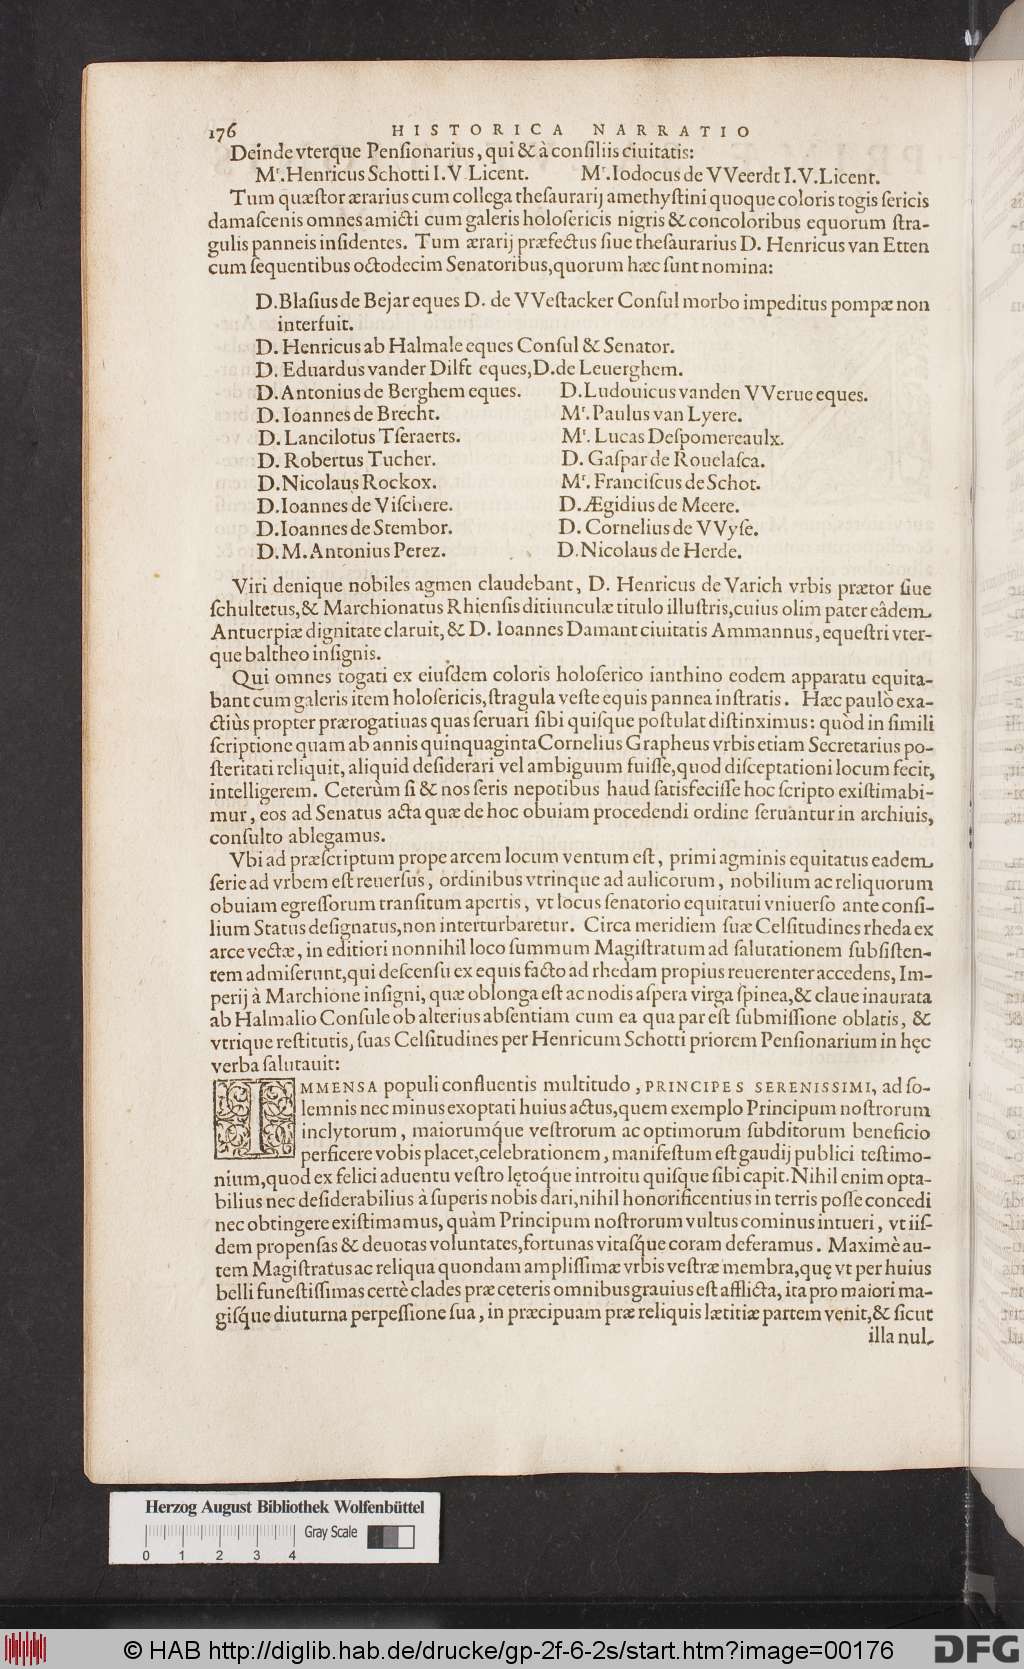 176 HISTORICA NARRATIO
Deinde vterque Penſionarius, qui & à conſiliis ciuitatis:
Mʳ. Henricus Schotti I.V. Licent. Mʳ. Iodocus de VVeerdt I.V. Licent.
Tum quæſtor ærarius cum collega theſaurarij amethyſtini quoque coloris togis ſericis
damaſcenis omnes amicti cum galeris holoſericis nigris & concoloribus equorum ſtra-
gulis panneis inſidentes. Tum ærarij præfectus ſiue theſaurarius D. Henricus van Etten
cum ſequentibus octodecim Senatoribus, quorum hæc ſunt nomina:
D. Blaſius de Bejar eques D. de VVeſtacker Conſul morbo impeditus pompæ non
interfuit.
D. Henricus ab Halmale eques Conſul & Senator.
D. Eduardus vander Dilft eques, D. de Leuerghem.
D. Antonius de Berghem eques. D. Ludouicus vanden VVerue eques.
D. Ioannes de Brecht. Mʳ. Paulus van Lyere.
D. Lancilotus Tſeraerts. Mʳ. Lucas Deſpomereaulx.
D. Robertus Tucher. D. Gaſpar de Rouelaſca.
D. Nicolaus Rockox. Mʳ. Franciſcus de Schot.
D. Ioannes de Viſchere. D. Ægidius de Meere.
D. Ioannes de Stembor. D. Cornelius de VVyſe.
D. M. Antonius Perez. D. Nicolaus de Herde.
Viri denique nobiles agmen claudebant, D. Henricus de Varich vrbis prætor ſiue
ſchultetus, & Marchionatus Rhienſis ditiunculæ titulo illuſtris, cuius olim pater eâdem
Antuerpiæ dignitate claruit, & D. Ioannes Damant ciuitatis Ammannus, equeſtri vter-
que baltheo inſignis.
Qui omnes togati ex eiuſdem coloris holoſerico ianthino eodem apparatu equita-
bant cum galeris item holoſericis, ſtragula veſte equis pannea inſtratis. Hæc paulò exa-
ctiùs propter prærogatiuas quas ſeruari ſibi quiſque poſtulat diſtinximus: quòd in ſimili
ſcriptione quam ab annis quinquaginta Cornelius Grapheus vrbis etiam Secretarius po-
ſteritati reliquit, aliquid deſiderari vel ambiguum fuiſſe, quod diſceptationi locum fecit,
intelligerem. Ceterùm ſi & nos ſeris nepotibus haud ſatisfeciſſe hoc ſcripto exiſtimabi-
mur, eos ad Senatus acta quæ de hoc obuiam procedendi ordine ſeruantur in archiuis,
conſulto ablegamus.
Vbi ad præſcriptum prope arcem locum ventum eſt, primi agminis equitatus eadem
ſerie ad vrbem eſt reuerſus, ordinibus vtrinque ad aulicorum, nobilium ac reliquorum
obuiam egreſſorum tranſitum apertis, vt locus ſenatorio equitatui vniuerſo ante conſi-
lium Status deſignatus, non interturbaretur. Circa meridiem ſuæ Celſitudines rheda ex
arce vectæ, in editiori nonnihil loco ſummum Magiſtratum ad ſalutationem ſubſiſten-
tem admiſerunt, qui deſcenſu ex equis facto ad rhedam propius reuerenter accedens, Im-
perij à Marchione inſigni, quæ oblonga eſt ac nodis aſpera virga ſpinea, & claue inaurata
ab Halmalio Conſule ob alterius abſentiam cum ea qua par eſt ſubmiſſione oblatis, &
vtrique reſtitutis, ſuas Celſitudines per Henricum Schotti priorem Penſionarium in hęc
verba ſalutauit:
IMMENSA populi confluentis multitudo, PRINCIPES SERENISSIMI, ad ſo-
lemnis nec minus exoptati huius actus, quem exemplo Principum noſtrorum
inclytorum, maiorumq́ue veſtrorum ac optimorum ſubditorum beneficio
perficere vobis placet, celebrationem, manifeſtum eſt gaudij publici teſtimo-
nium, quod ex felici aduentu veſtro lętoq́ue introitu quiſque ſibi capit. Nihil enim opta-
bilius nec deſiderabilius à ſuperis nobis dari, nihil honorificentius in terris poſſe concedi
nec obtingere exiſtimamus, quàm Principum noſtrorum vultus cominus intueri, vt iiſ-
dem propenſas & deuotas voluntates, fortunas vitaſq́ue coram deferamus. Maximè au-
tem Magiſtratus ac reliqua quondam ampliſſimæ vrbis veſtræ membra, quę vt per huius
belli funeſtiſſimas certè clades præ ceteris omnibus grauius eſt afflicta, ita pro maiori ma-
giſq́ue diuturna perpeſſione ſua, in præcipuam præ reliquis lætitiæ partem venit, & ſicut
illa nul-
Herzog August Bibliothek Wolfenbüttel
Gray Scale
0 1 2 3 4
© HAB http://diglib.hab.de/drucke/gp-2f-6-2s/start.htm?image=00176
DFG